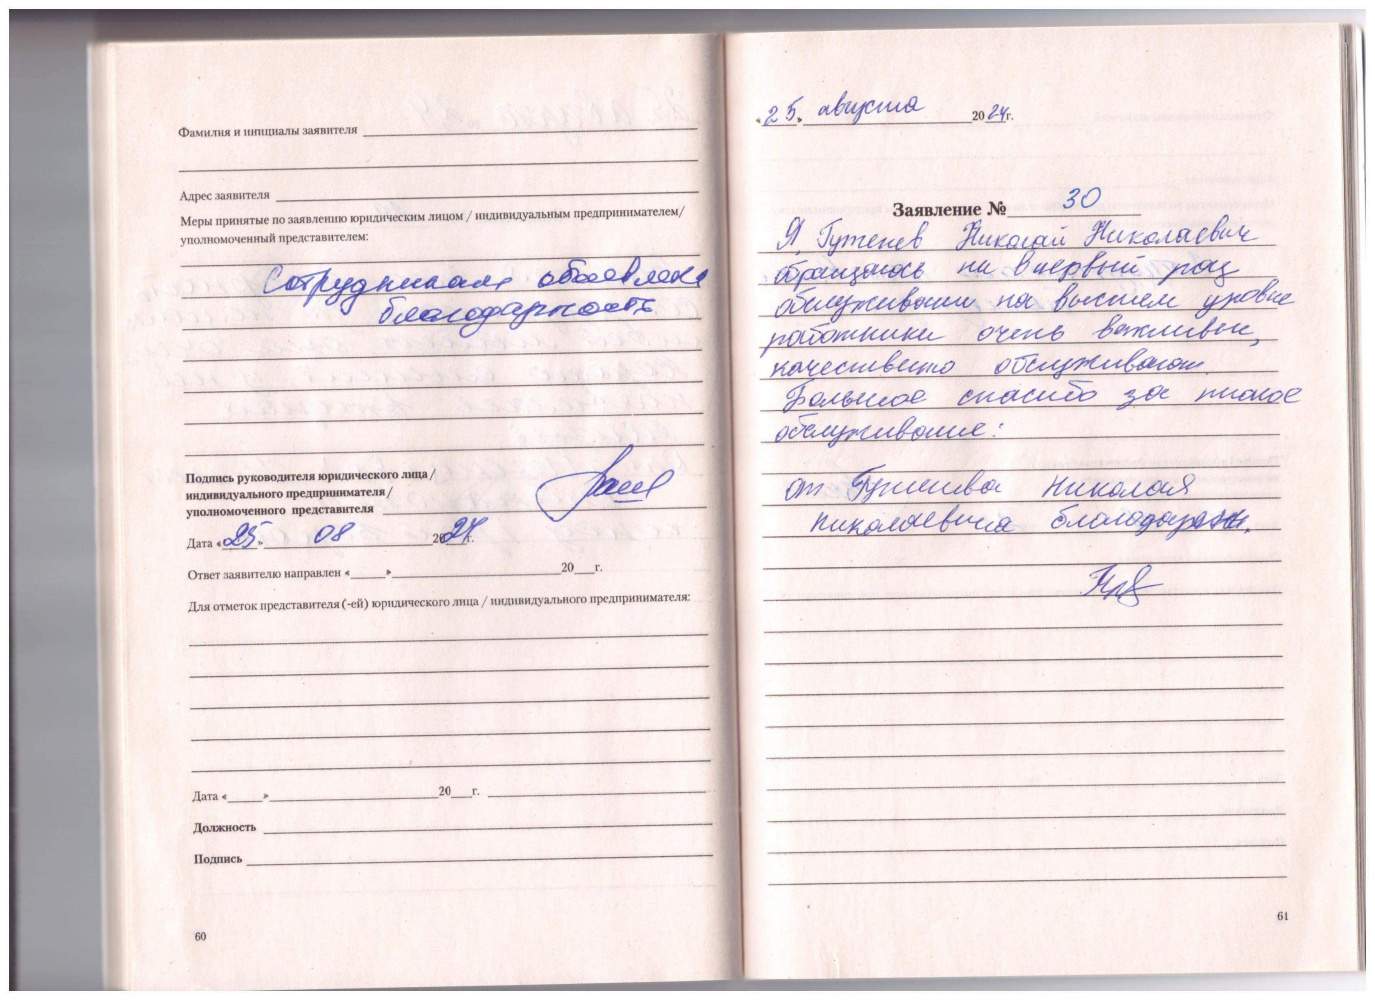 Фамилия и инициалы заявителя
Адрес заявителя
Меры принятые по заявлению юридическим лицом / индивидуальным предпринимателем/
уполномоченный представителем:
Сотрудникам объявлена
благодарность
Подпись руководителя юридического лица /
индивидуального предпринимателя /
уполномоченного представителя
Дата «25» 08 2024г.
Ответ заявителю направлен « » 20 г.
Для отметок представителя (-ей) юридического лица / индивидуального предпринимателя:
Дата « » 20 г.
Должность
Подпись
60
«25» августа 2024г.
Заявление № 30
Я, Гуженев Николай Николаевич
обращаюсь не впервый раз
обслуживали на высшем уровне
работники очень вежливые,
качествено обслуживают.
Большое спасибо за такое
обслуживание:
от Гуженева Николая
Николаевича
61